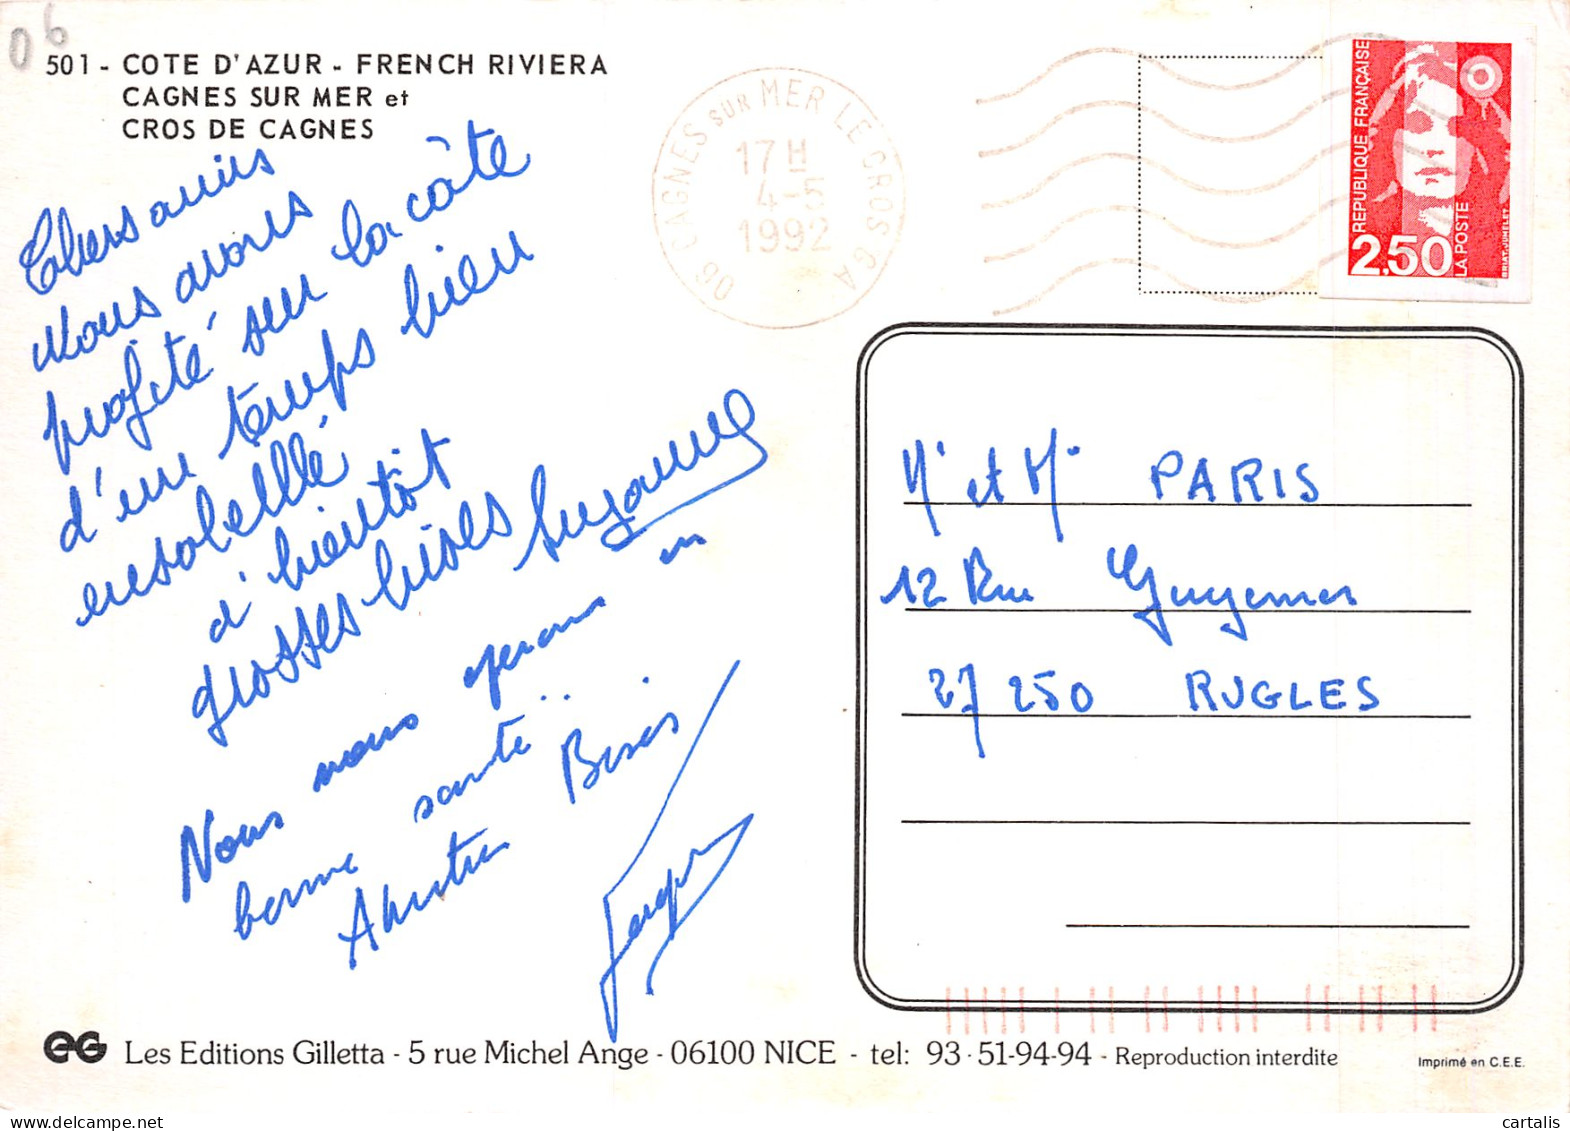 06
501 - COTE D'AZUR - FRENCH RIVIERA
CAGNES SUR MER et
CROS DE CAGNES
Chers amis
Nous avons
profité sur la côte
d'un temps bien
ensolellé
à bientôt
grosses bises Suzanne
Nous nous
bonne santé
Bises
06 CAGNES SUR MER LE CROS CA
17 H
4-5
1992
REPUBLIQUE FRANÇAISE
2,50
LA POSTE
BRIAT.JUMELET
Mr et Me PARIS
12 Rue Guynemer
27 250 RUGLES
EG Les Editions Gilletta - 5 rue Michel Ange - 06100 NICE - tel: 93·51-94-94 - Reproduction interdite
Imprimé en C.E.E.
cartalis